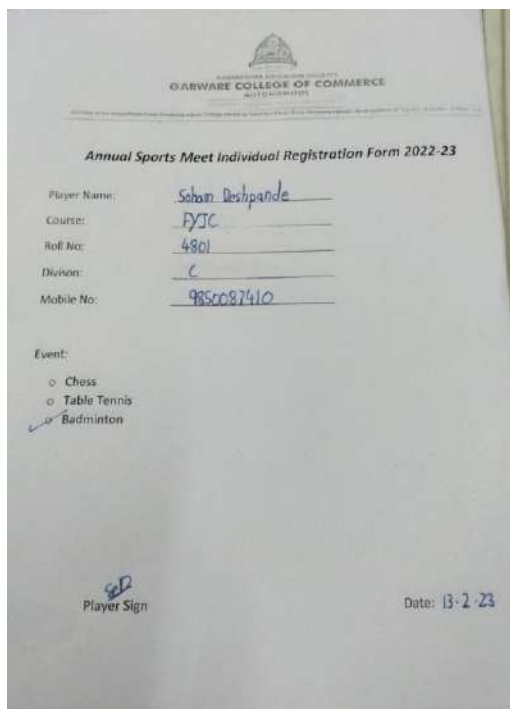 GARWARE COLLEGE OF COMMERCE
AUTONOMOUS
Annual Sports Meet Individual Registration Form 2022-23
Player Name: Soham Deshpande
Course: FYJC
Roll No: 4801
Divison: C
Mobile No: 9850087410
Event:
Chess
Table Tennis
Badminton
Player Sign
Date: 13-2-23